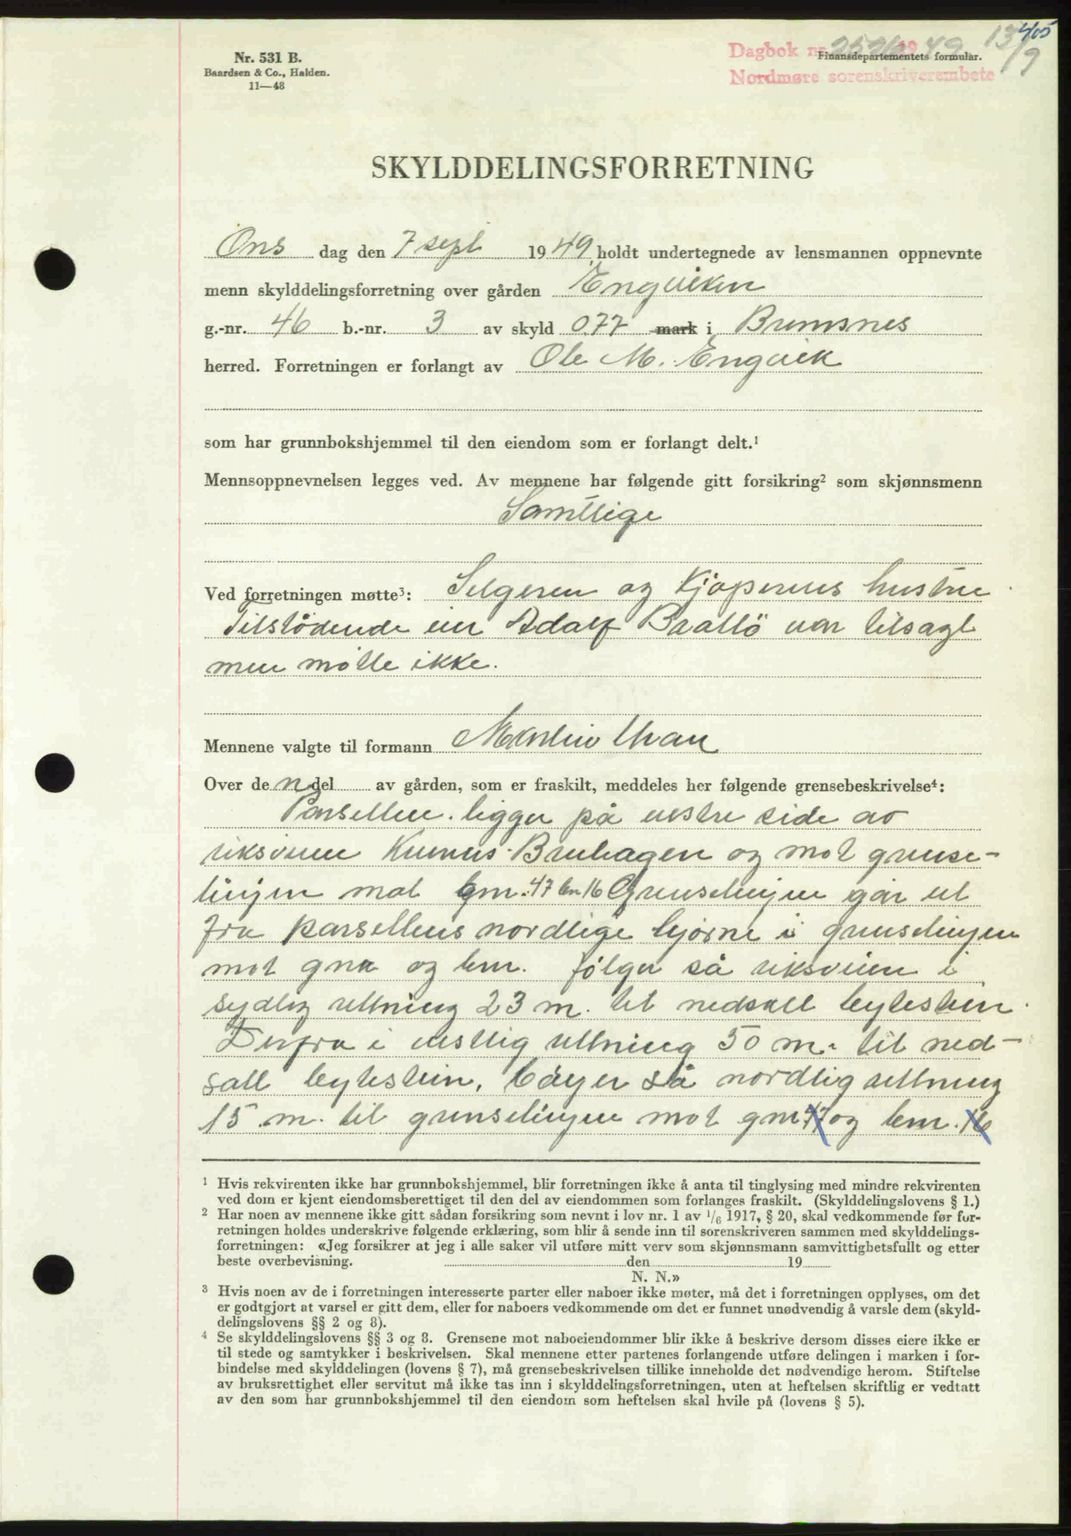 405
Nr. 531 B.
Baardsen & Co., Halden.
11—48
Dagbok nr. 2526 19 49 13/9
Finansdepartementets formular.
Nordmøre sorenskriverembete
SKYLDDELINGSFORRETNING
Ons dag den 7 sept 1949, holdt undertegnede av lensmannen oppnevnte
menn skylddelingsforretning over gården Engviken
g.-nr. 46 b.-nr. 3 av skyld 0.77 mark i Bremsnes
herred. Forretningen er forlangt av Ole M. Engvik
som har grunnbokshjemmel til den eiendom som er forlangt delt.¹
Mennsoppnevnelsen legges ved. Av mennene har følgende gitt forsikring² som skjønnsmenn
Samtlige
Ved forretningen møtte³: Selgeren og kjøperens hustru
Tilstødende eier Adolf Brattö var tilsagt
men møtte ikke.
Mennene valgte til formann Martin
Over den del av gården, som er fraskilt, meddeles her følgende grensebeskrivelse⁴:
Parsellen ligger på vestre side av
riksveien Bruhagen og mot grense-
linjen mot gnr. 47 bn 16 Grenselinjen går ut
fra parsellens nordlige hjørne i grenselinjen
mot gnr og bnr. følger så riksveien i
sydlig rettning 23 m. til nedsatt bytestein.
Derfra i vestlig rettning 50 m. til ned-
satt bytestein, bøyer så nordlig rettning
15 m. til grenselinjen mot gnr 47 og bnr. 16
¹ Hvis rekvirenten ikke har grunnbokshjemmel, blir forretningen ikke å anta til tinglysing med mindre rekvirenten
ved dom er kjent eiendomsberettiget til den del av eiendommen som forlanges fraskilt. (Skylddelingslovens § 1.)
² Har noen av mennene ikke gitt sådan forsikring som nevnt i lov nr. 1 av 1/6 1917, § 20, skal vedkommende før for-
retningen holdes underskrive følgende erklæring, som blir å sende inn til sorenskriveren sammen med skylddelings-
forretningen: «Jeg forsikrer at jeg i alle saker vil utføre mitt verv som skjønnsmann samvittighetsfullt og etter
beste overbevisning. den 19
N. N.»
³ Hvis noen av de i forretningen interesserte parter eller naboer ikke møter, må det i forretningen opplyses, om det
er godtgjort at varsel er gitt dem, eller for naboers vedkommende om det er funnet unødvendig å varsle dem (skyld-
delingslovens §§ 2 og 8).
⁴ Se skylddelingslovens §§ 3 og 8. Grensene mot naboeiendommer blir ikke å beskrive dersom disses eiere ikke er
til stede og samtykker i beskrivelsen. Skal mennene etter partenes forlangende utføre delingen i marken i for-
bindelse med skylddelingen (lovens § 7), må grensebeskrivelsen tillike inneholde det nødvendige herom. Stiftelse
av bruksrettighet eller servitut må ikke tas inn i skylddelingsforretningen, uten at heftelsen skriftlig er vedtatt
av den som har grunnbokshjemmel til den eiendom som heftelsen skal hvile på (lovens § 5).